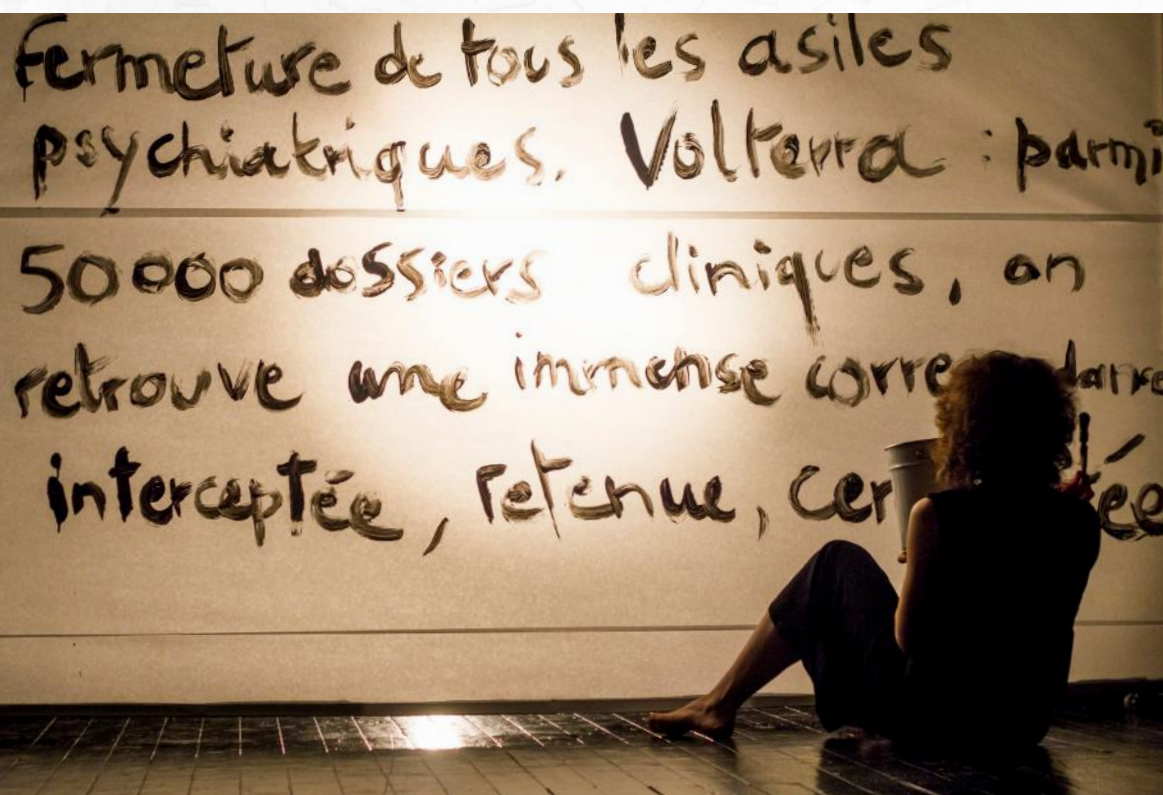 Fermeture de tous les asiles
psychiatriques. Volterra : parmi
50000 dossiers cliniques, on
retrouve une immense corre
interceptée, retenue,